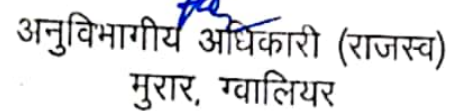 अनुविभागीय अधिकारी (राजस्व)
मुरार, ग्वालियर